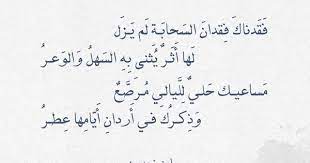 فَقَدناكَ فِقدانَ السَحابَةِ لَم يَزَل
لَها أَثَرٌ يُثنى بِهِ السَهلُ وَالوَعرُ
مَساعيكَ حَليٌ لِلَّيالي مُرَصَّعٌ
وَذِكرُكَ في أَردانِ أَيّامِها عِطرُ